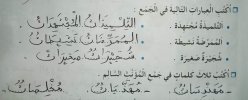 أكتب العبارات التالية في الجمع :
• التلميذة مجتهدة : التلميذات المجتهدات
• الممرضة نشيطة : الممرضات نشيطات
• شجيرة صغيرة : شجيرات صغيرات
أكتب ثلاث كلمات في جمع المؤنث السالم
- مقدمات - مخلصات